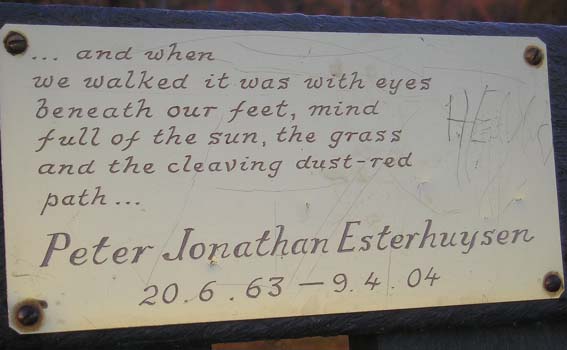 ... and when
we walked it was with eyes
beneath our feet, mind
full of the sun, the grass
and the cleaving dust-red
path...
Peter Jonathan Esterhuysen
20.6.63 — 9.4.04